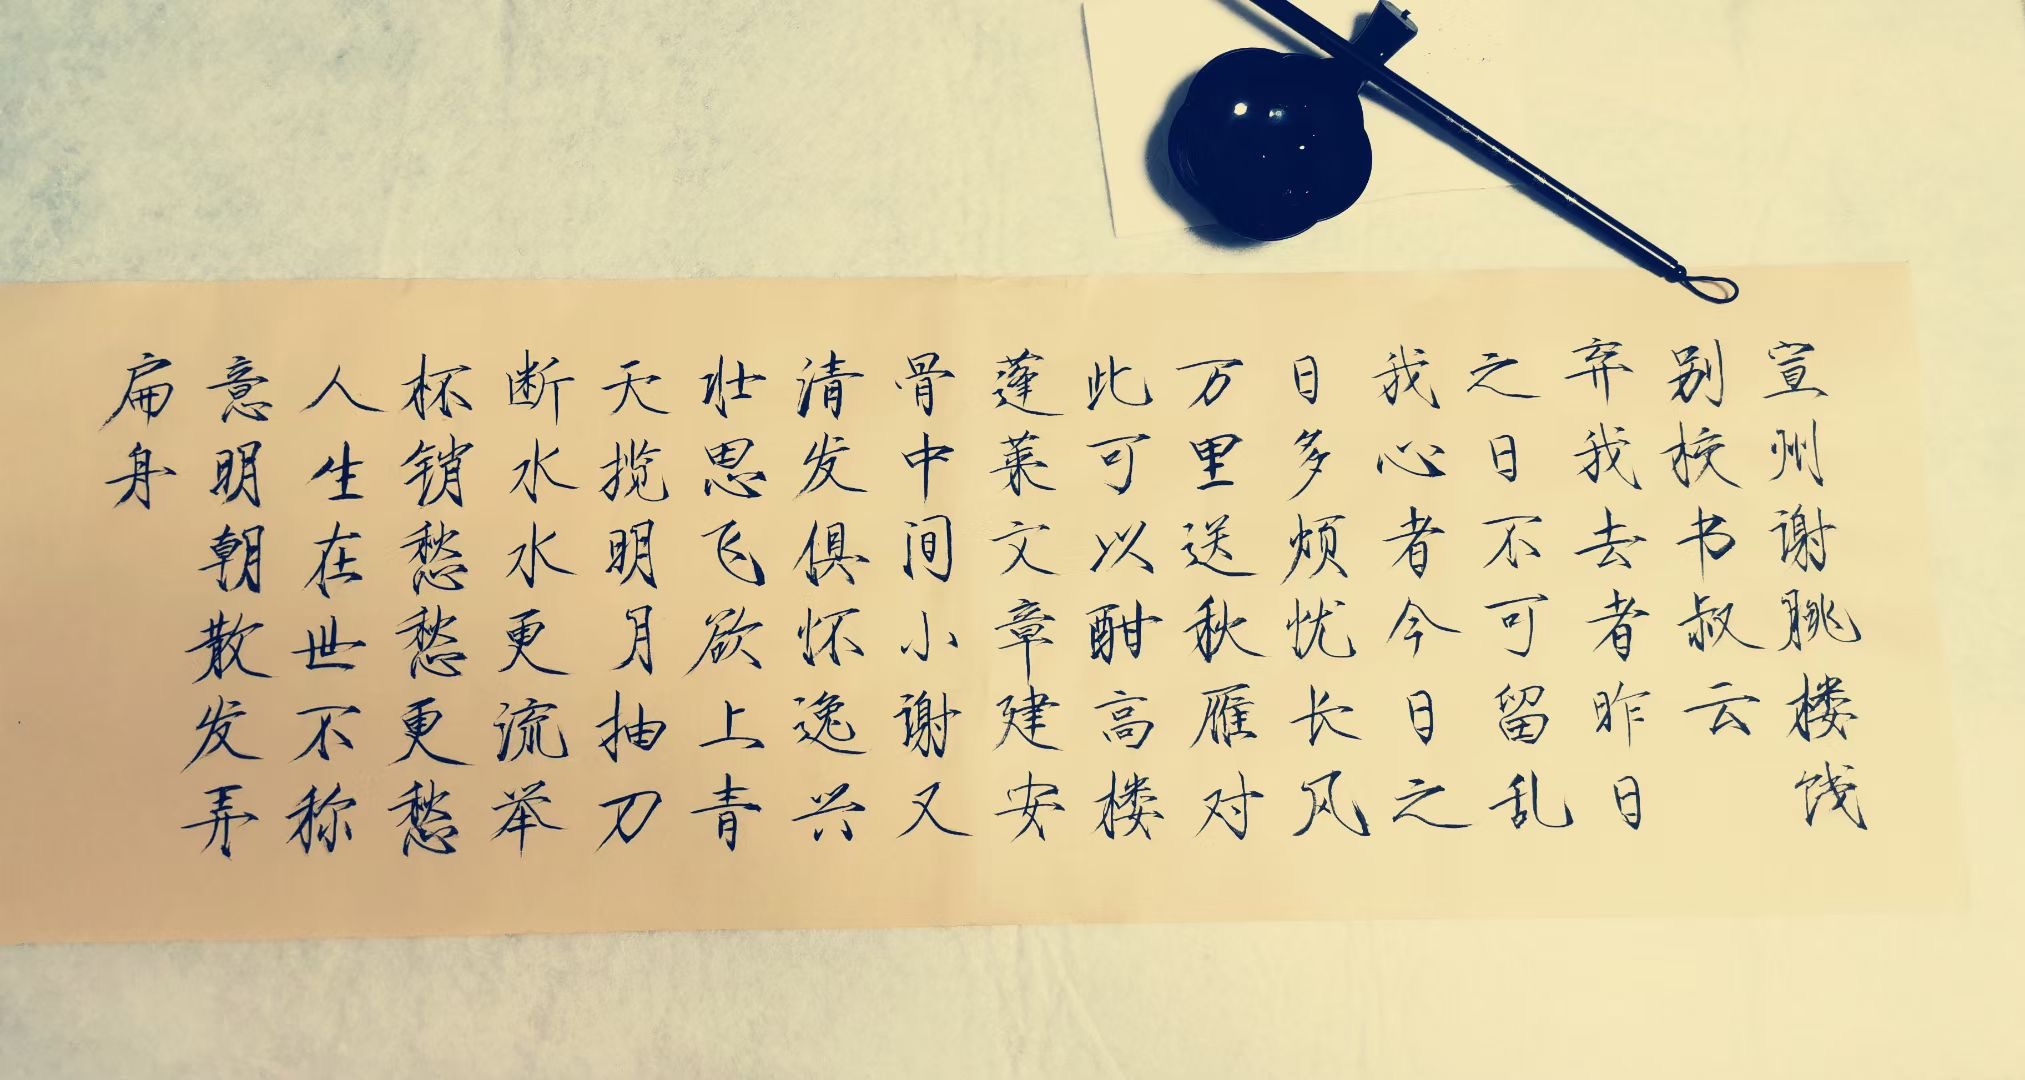 宣州谢朓楼饯
别校书叔云
弃我去者昨日
之日不可留乱
我心者今日之
日多烦忧长风
万里送秋雁对
此可以酣高楼
蓬莱文章建安
骨中间小谢又
清发俱怀逸兴
壮思飞欲上青
天揽明月抽刀
断水水更流举
杯销愁愁更愁
人生在世不称
意明朝散发弄
扁舟